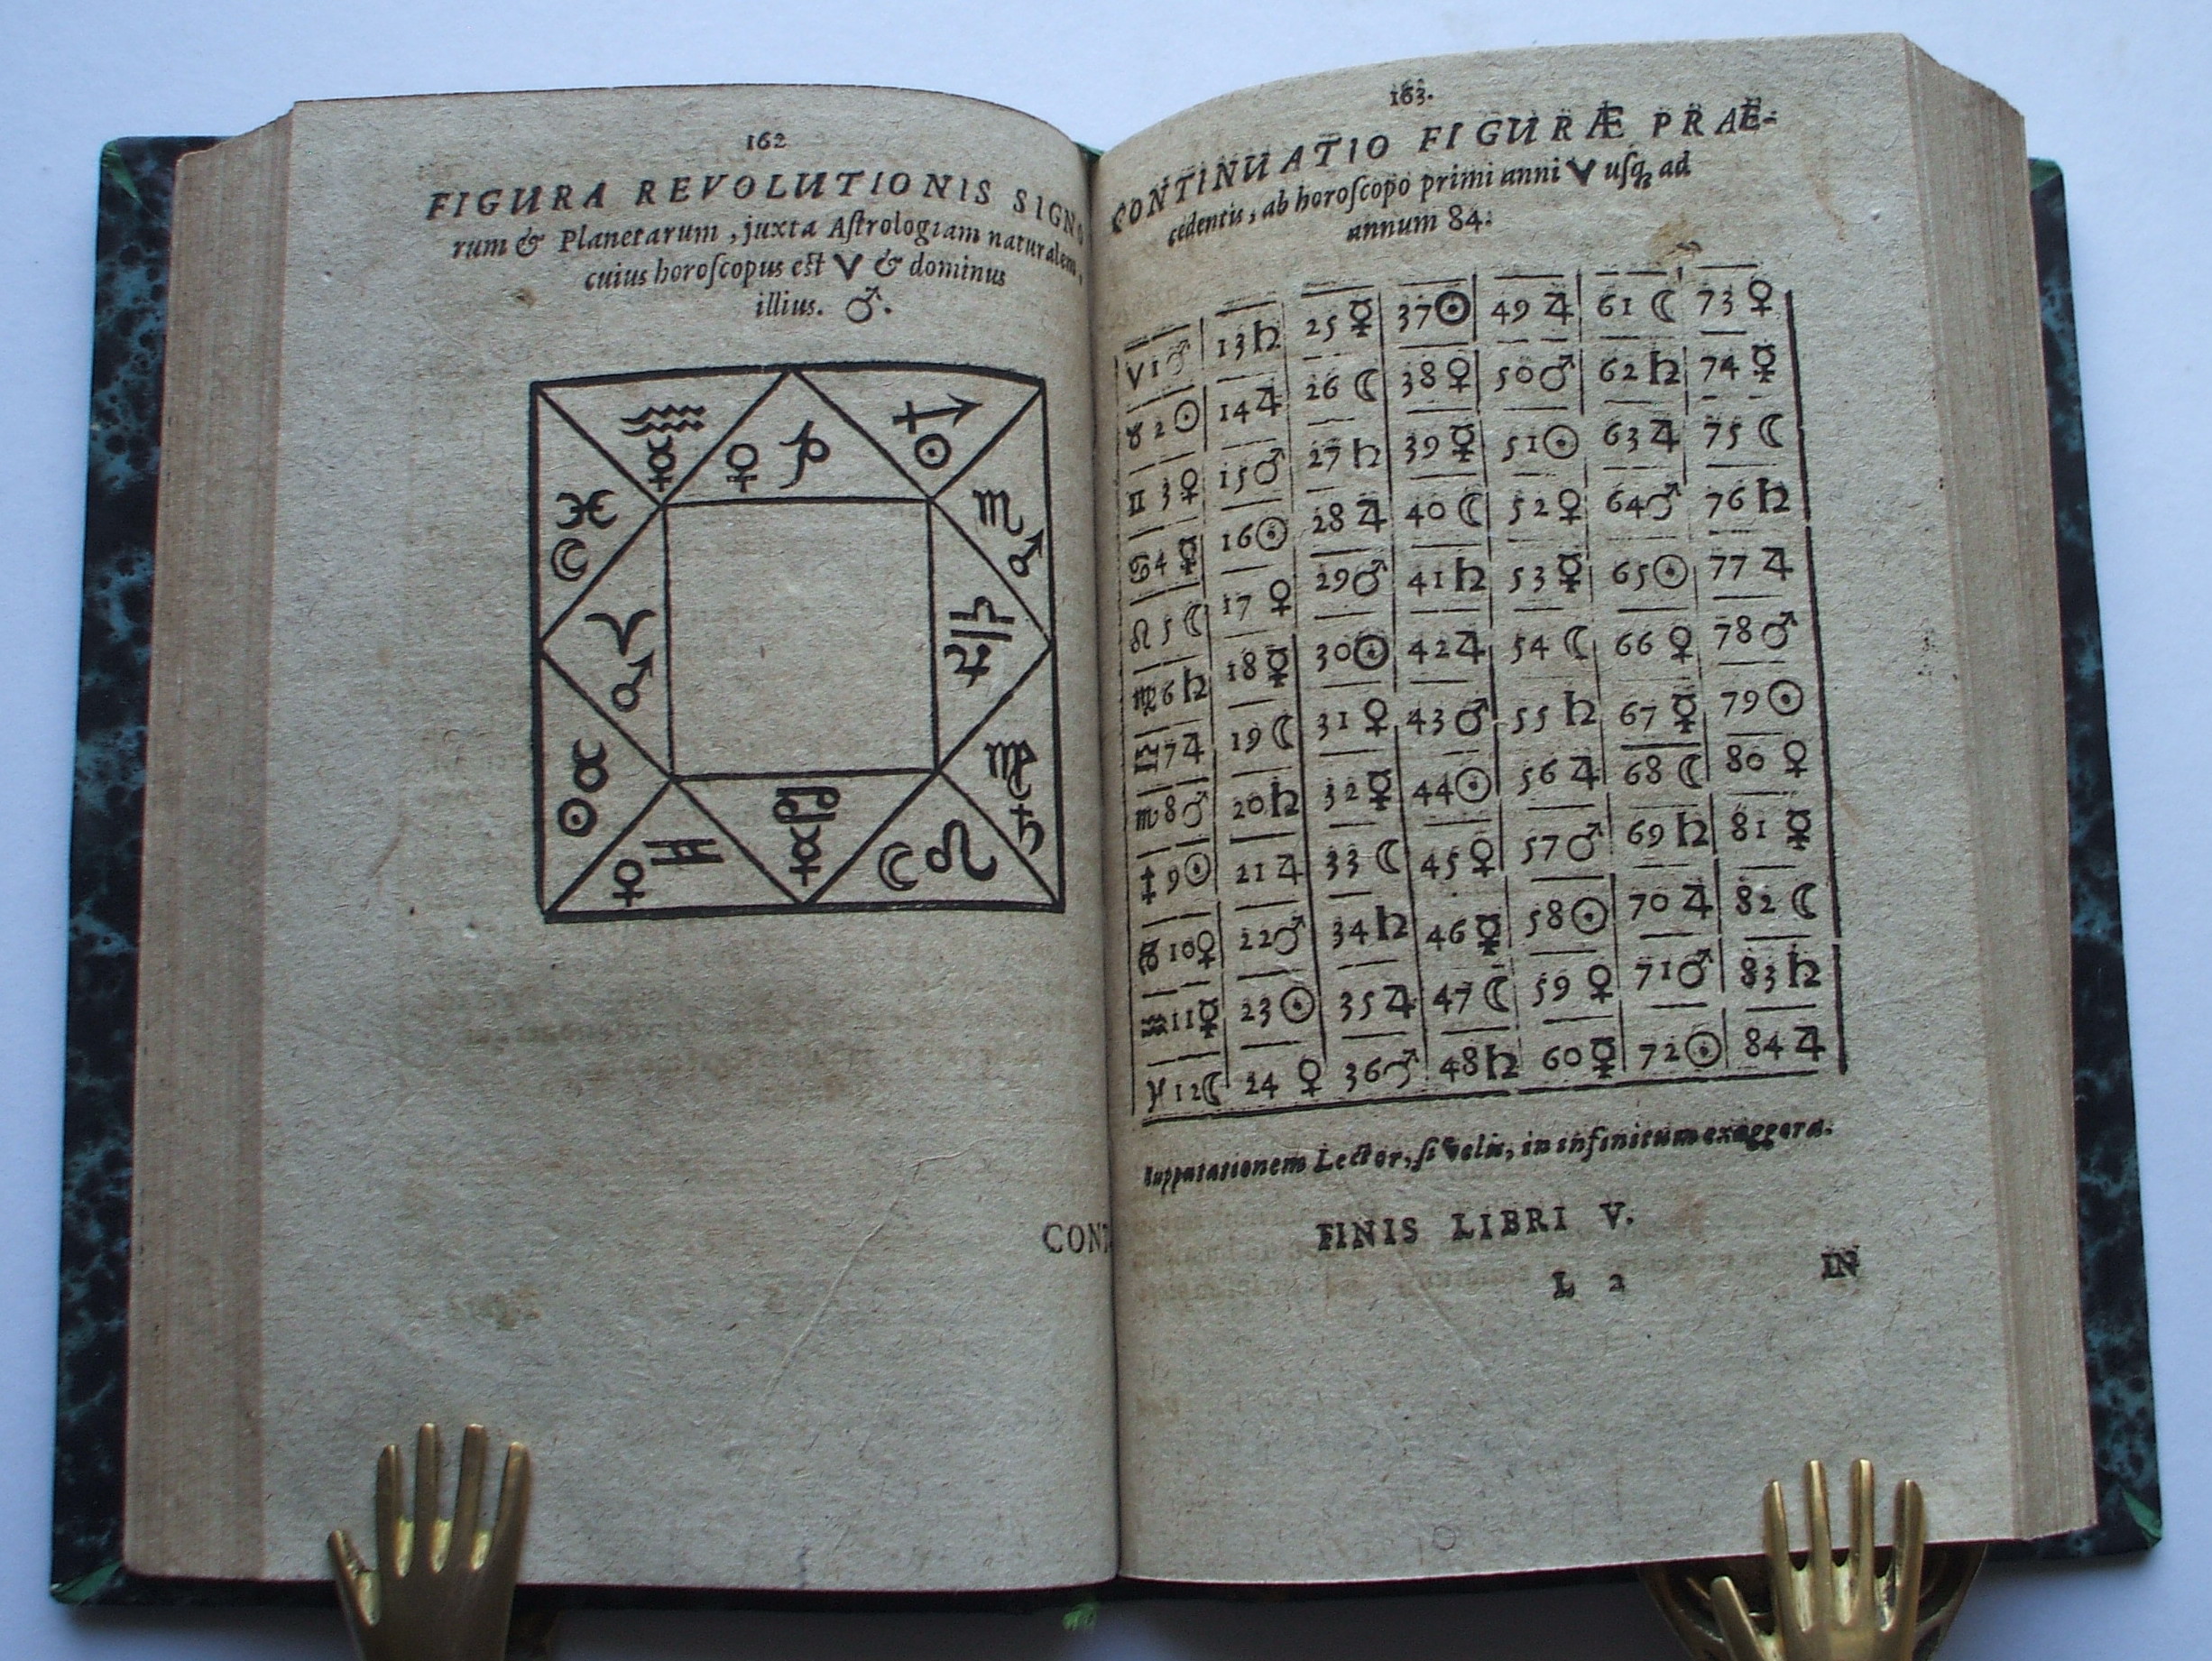 162
FIGURA REVOLUTIONIS SIGNO
rum & Planetarum, juxta Aſtrologiam naturalem,
cuius horoſcopus est ♈ & dominus
illius. ♂.
♒ ♀ ♑ ♐
☿ ☉
♓ ♏
☾ ♂
♈ ♎
♂ ♃
♉ ♍
☉ ♋ ♄
♀ ♊ ☿ ☾ ♌
CONT
163.
CONTINUATIO FIGURÆ PRAE-
cedentis, ab horoſcopo primi anni ♈ uſq; ad
annum 84.
♈ 1 ♂ 13 ♄ 25 ☿ 37 ☉ 49 ♃ 61 ☾ 73 ♀
♉ 2 ☉ 14 ♃ 26 ☾ 38 ♀ 50 ♂ 62 ♄ 74 ☿
♊ 3 ♀ 15 ♂ 27 ♄ 39 ☿ 51 ☉ 63 ♃ 75 ☾
♋ 4 ☿ 16 ☉ 28 ♃ 40 ☾ 52 ♀ 64 ♂ 76 ♄
♌ 5 ☾ 17 ♀ 29 ♂ 41 ♄ 53 ☿ 65 ☉ 77 ♃
♍ 6 ♄ 18 ☿ 30 ☉ 42 ♃ 54 ☾ 66 ♀ 78 ♂
♎ 7 ♃ 19 ☾ 31 ♀ 43 ♂ 55 ♄ 67 ☿ 79 ☉
♏ 8 ♂ 20 ♄ 32 ☿ 44 ☉ 56 ♃ 68 ☾ 80 ♀
♐ 9 ☉ 21 ♃ 33 ☾ 45 ♀ 57 ♂ 69 ♄ 81 ☿
♑ 10 ♀ 22 ♂ 34 ♄ 46 ☿ 58 ☉ 70 ♃ 82 ☾
♒ 11 ☿ 23 ☉ 35 ♃ 47 ☾ 59 ♀ 71 ♂ 83 ♄
♓ 12 ☾ 24 ♀ 36 ♂ 48 ♄ 60 ☿ 72 ☉ 84 ♃
Supputationem Lector, ſi velis, in infinitum exaggera.
FINIS LIBRI V.
L 2
IN